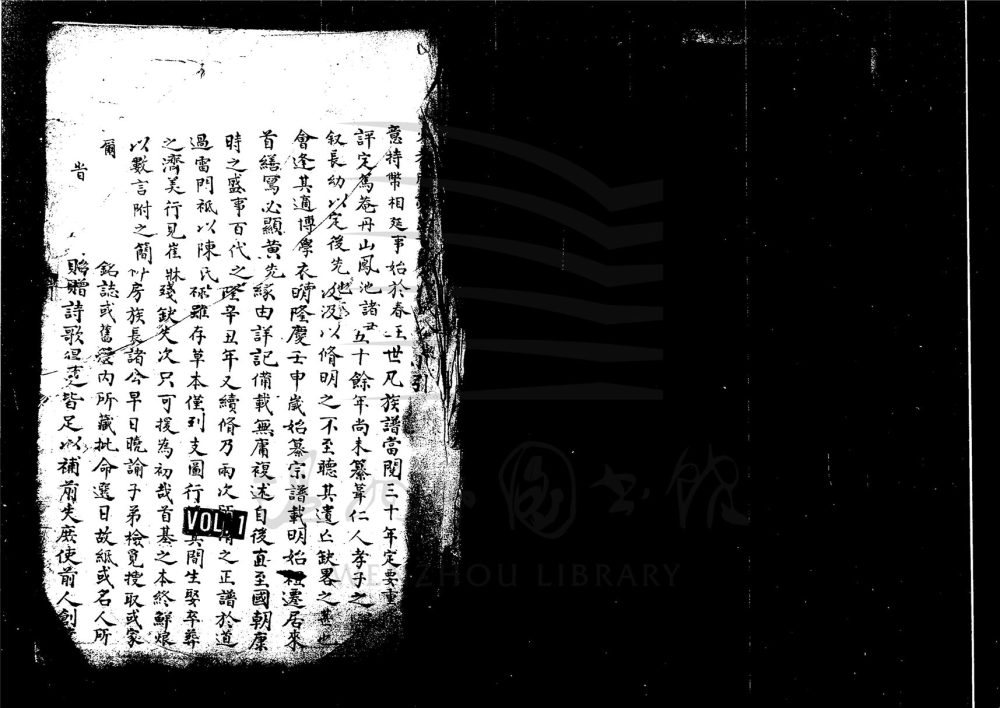 引
意持幣相延事始於春王世凡族譜當閱三十年定要重
評定篤菴丹山鳳池諸五十餘年尚未纂葺仁人孝子之
叙長幼以定後先汲汲以脩明之不至聽其遺亡缺畧之甚也
會逢其適博學衣明隆慶壬申歲始纂宗譜載明始祖遷居來
首繕寫必顯黃先緣由詳記備載無庸複述自後直至國朝康
時之盛事百代之隆辛丑年又續脩乃兩次脩之正譜於道
過雷門祗以陳氏雖存草本僅列支圖行其間生娶卒葬
之濟美行見崔殘缺失次只可援為初哉首基之本終鮮
以數言附之簡房族長諸公早日曉諭子弟檢覓搜取或家
爾銘誌或舊塋內所藏批命選日故紙或名人所
昔貽贈詩歌但皆足以補前失庶使前人創
VOL. 1
WENZHOU LIBRARY